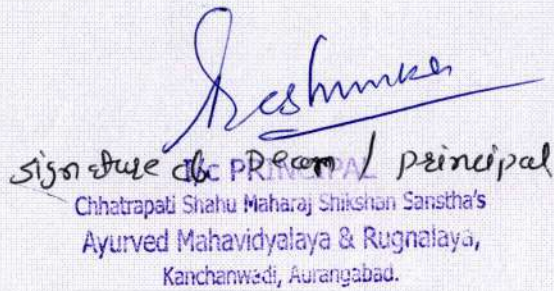 signature of Dean / principal
I/c PRINCIPAL
Chhatrapati Shahu Maharaj Shikshan Sanstha's
Ayurved Mahavidyalaya & Rugnalaya,
Kanchanwadi, Aurangabad.